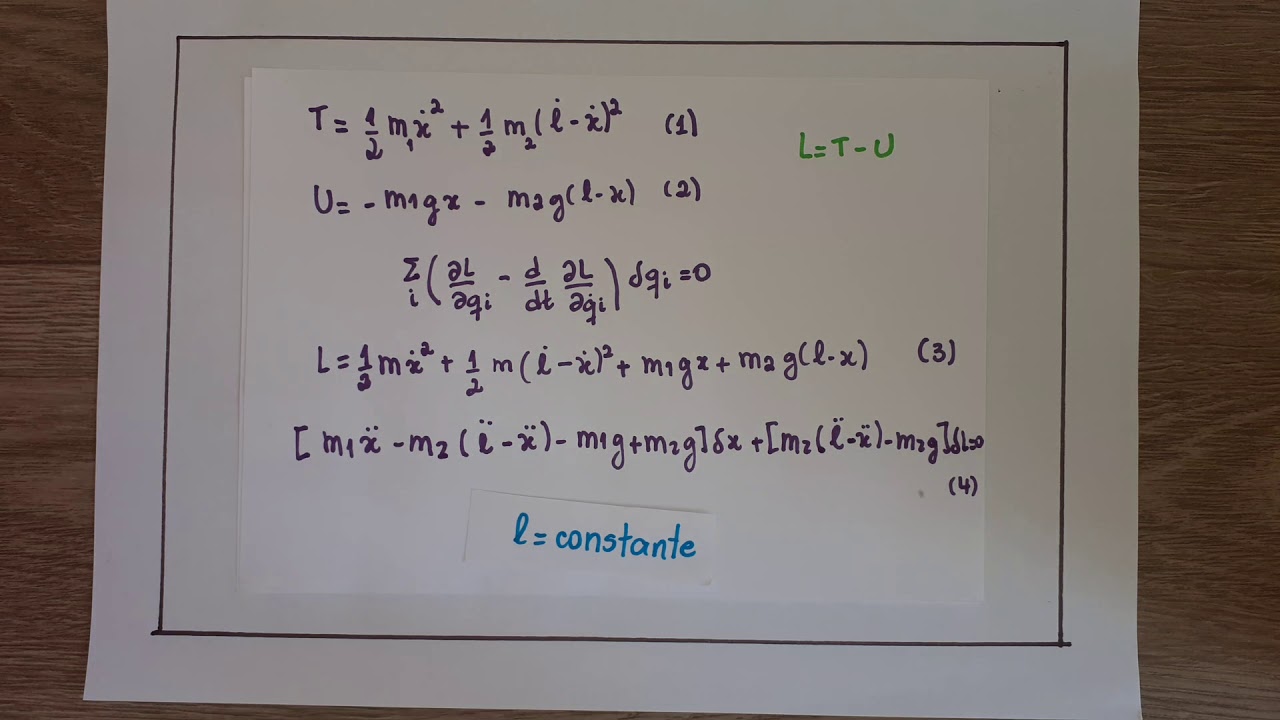 T = 1/2 m₁ẋ² + 1/2 m₂(l̇ - ẋ)² (1)
L = T - U
U = - m1gx - m2g(l-x) (2)
Σi (∂L/∂qi - d/dt ∂L/∂q̇i) δqi = 0
L = 1/2 mẋ² + 1/2 m(l̇ - ẋ)² + m1gx + m2g(l-x) (3)
[m1ẍ - m2(l̈ - ẍ) - m1g + m2g]δx + [m2(l̈ - ẍ) - m2g]δL=0
(4)
l = constante